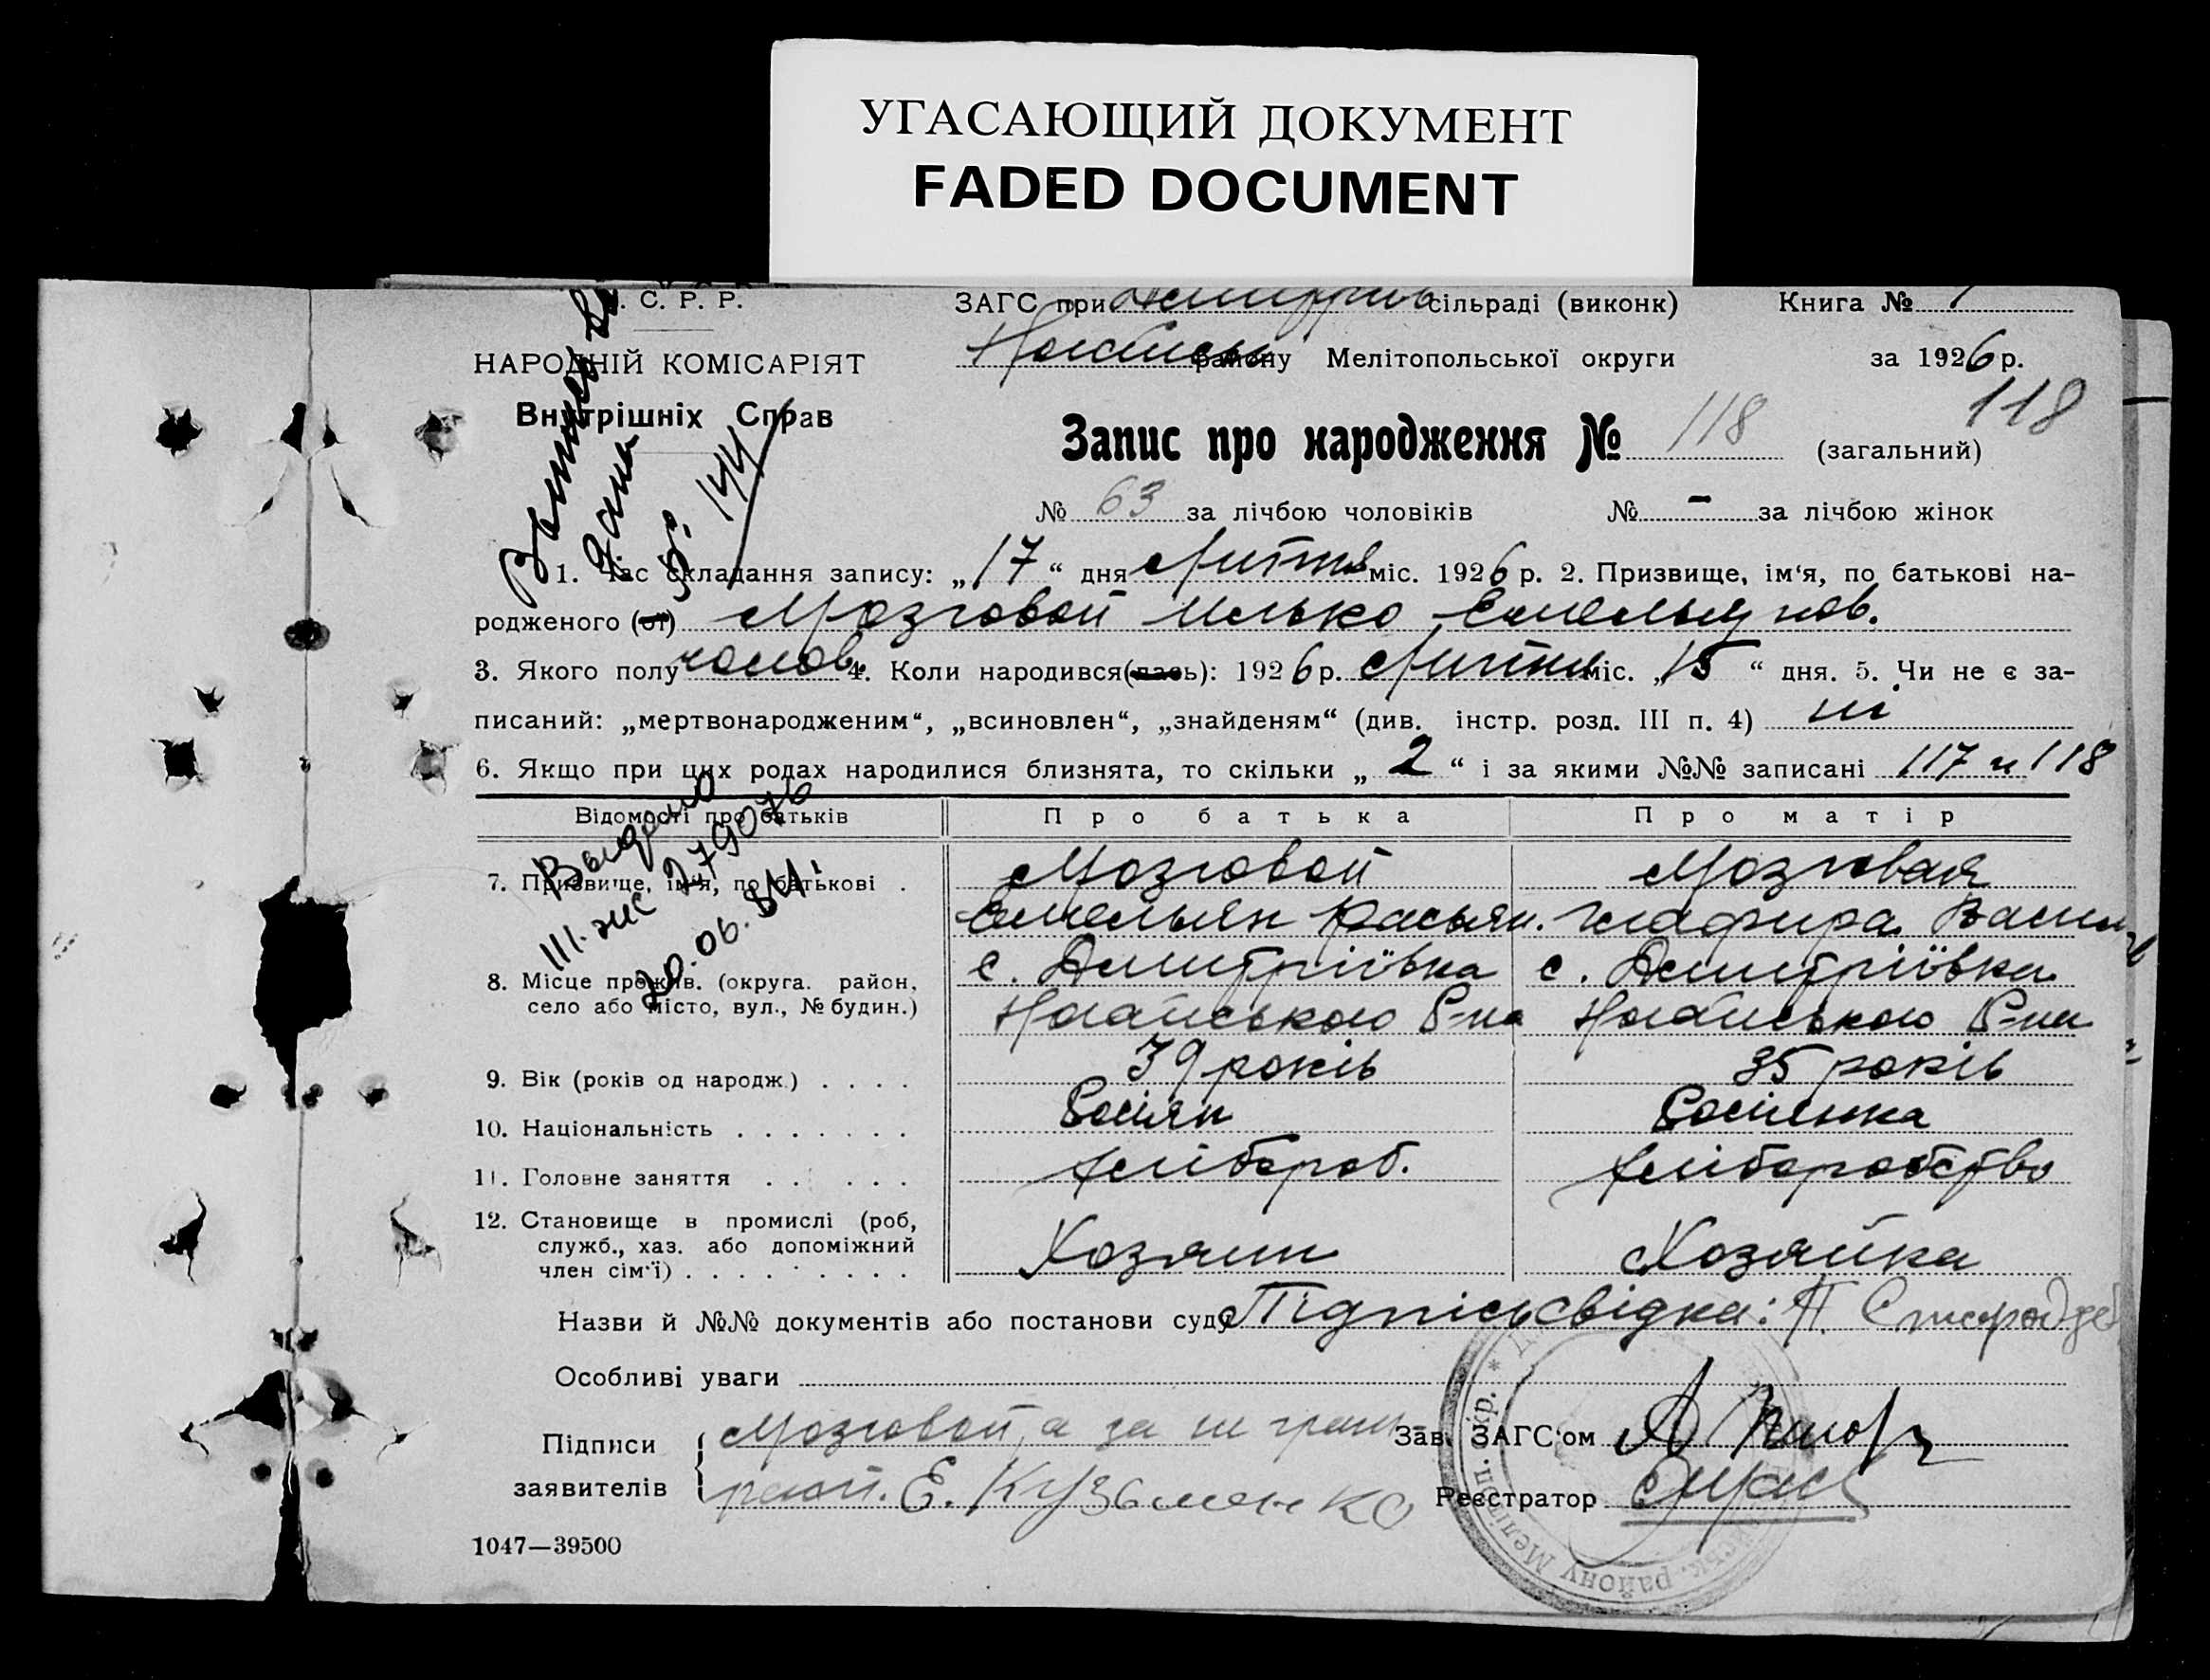 УГАСАЮЩИЙ ДОКУМЕНТ
FADED DOCUMENT
. С. Р. Р.
ЗАГС при Дмитрів сільраді (виконк) Книга № 1
НАРОДНІЙ КОМІСАРІЯТ
району Мелітопольської округи за 1926 р.
118
Внутрішніх Справ
Запис про народження № 118 (загальний)
№ 63 за лічбою чоловіків № - за лічбою жінок
144
1. Час складання запису: „17“ дня Липня міс. 1926 р. 2. Призвище, ім‘я, по батькові на-
родженого (ої) Мозговой Илько Емельянов.
3. Якого полу чолов. 4. Коли народився(лась): 1926 р. Липня міс. „15“ дня. 5. Чи не є за-
писаний: „мертвонародженим“, „всиновлен“, „знайденям“ (див. інстр. розд. III п. 4) ні
6. Якщо при цих родах народилися близнята, то скільки „2“ і за якими №№ записані 117 и 118
Відомості про батьків Про батька Про матір
Выдано
III-жс 279076
20.06.84г.
7. Призвище, ім‘я, по батькові . Мозговой Мозговая
Емельян Касьян. Глафира Васил
8. Місце прожив. (округа. район, с. Дмитріївка с. Дмитріївка
село або місто, вул., № будин.) Ногайського Р-на Ногайського Р-на
9. Вік (років од народж.) . . . . 39 років 35 років
10. Національність . . . . . . . Росіян Росіянка
11. Головне заняття . . . . . хлібороб. хліборобство
12. Становище в промислі (роб,
служб., хаз. або допоміжний
член сім‘ї) . . . . . . . . . Хозяин Хозяйка
Назви й №№ документів або постанови суду Підпісь свідка: П.
Особливі уваги
Підписи заявителів Мозговой, а за не грам Зав. ЗАГС‘ом
Е. Кузьменко Реєстратор
1047—39500